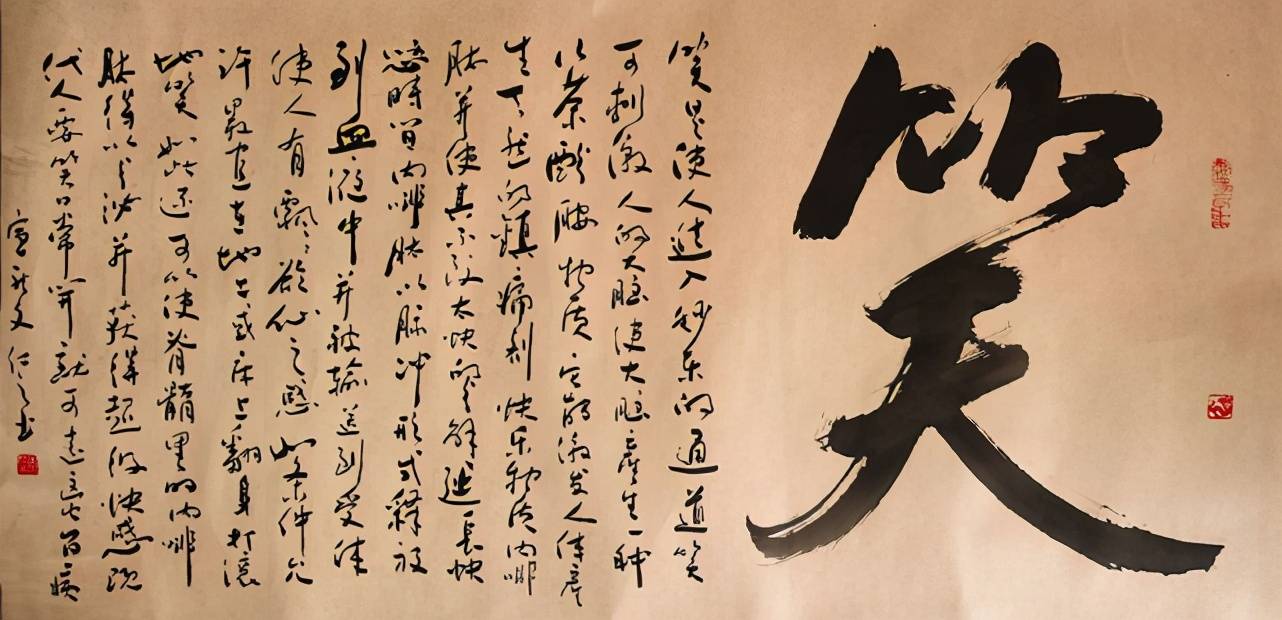 笑
笑是使人进入妙乐的通道笑
可刺激人的大脑使大脑产生一种
茶酚胺物质它能激发人体产
生天然的鎮痛剂快乐物质内啡
肽并使其不致太快的分解延长快
感時间内啡肽以脉冲形式释放
到血液中并被输送到受体
使人有飘飘欲仙之感如条件允
许最宜在地上或床上翻身打滚
地笑如此还可以使脊髓里的内啡
肽得以分泌并获得超级快感现
代人要笑口常开就可远百病